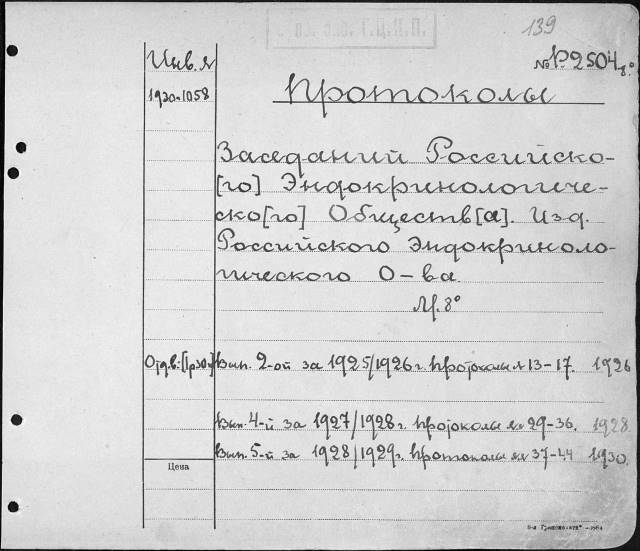 139
Инв. №
№ Р2504 8°
1930-1058
Протоколы
Заседаний Российско-
[го] Эндокринологиче-
ско[го] Обществ[а]. Изд.
Российского Эндокриноло-
гического О-ва.
М. 8°
Вып. 2-ой за 1925/1926 г. протоколы № 13-17. 1926
Вып. 4-й за 1927/1928 г. протоколы № 29-36. 1928
Вып. 5-й за 1928/1929 г. протоколы № 37-44 1930.
Цена